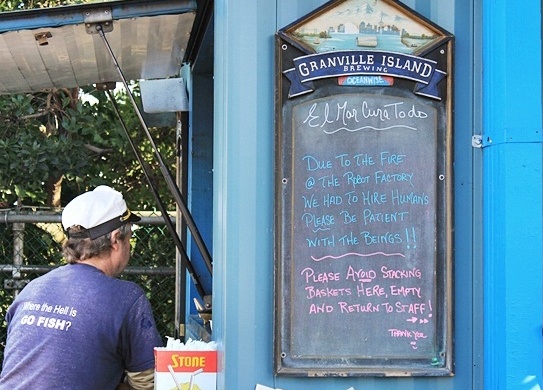 GRANVILLE ISLAND
BREWING
OCEANWISE
El Mar Cura Todo
DUE TO THE FIRE
@ THE ROBOT FACTORY
WE HAD TO HIRE HUMANS
PLEASE BE PATIENT
WITH THE BEINGS!!
PLEASE AVOID STACKING
BASKETS HERE, EMPTY
AND RETURN TO STAFF!
THANK YOU
Where the Hell is
GO FISH?
STONE